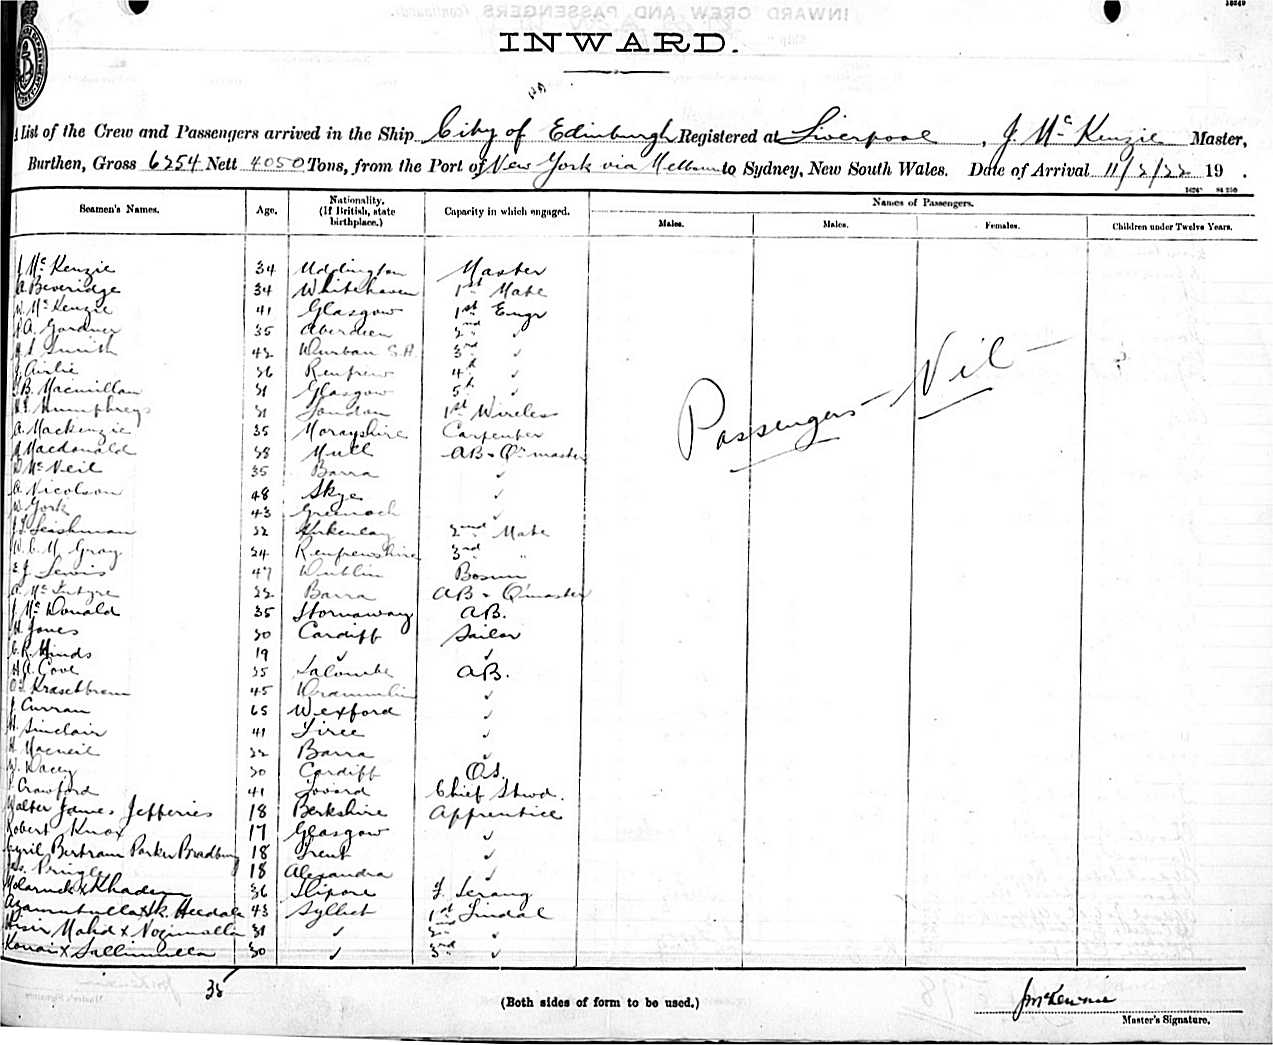 INWARD.
List of the Crew and Passengers arrived in the Ship City of Edinburgh Registered at Liverpool, J. McKenzie Master,
Burthen, Gross 6254 Nett 4050 Tons, from the Port of New York via Melbourne to Sydney, New South Wales. Date of Arrival 11/2/22 19 .
Seamen's Names. Age. Nationality. (If British, state birthplace.) Capacity in which engaged. Names of Passengers.
Males. Males. Females. Children under Twelve Years.
J. McKenzie 34 Uddington Master
A. Beveridge 34 Whitehaven 1st Mate
W. McKenzie 41 Glasgow 1st Engr
A. Gardner 35 Aberdeen 2nd "
Smith 42 Durban S.A. 3rd "
J. Airlie 36 Renfrew 4th "
B. Macmillan 31 Glasgow 5th "
Humphreys 31 London 1st Wireless
A. Mackenzie 35 Morayshire Carpenter
Macdonald 38 Mull AB & Qr master
McNeil 35 Barra "
A. Nicolson 48 Skye "
W. York 43 Greenock "
J. T. Leishman 32 2nd Mate
W. C. M. Gray 24 Renfrewshire 3rd "
E. J. Lewis 47 Dublin Bosun
A. McIntyre 32 Barra AB & Q'master
J. McDonald 35 Stornaway AB.
H. Jones 30 Cardiff Sailor
C. R. Hinds 19 " "
H. A. Cove 35 Salcombe AB.
45 "
J. Curran 65 Wexford "
H. Sinclair 41 Tiree "
H. Macneil 32 Barra "
W. Dacey 30 Cardiff O.S.
Crawford 41 Chief Stwd.
Walter James Jefferies 18 Berkshire Apprentice
Robert Knox 17 Glasgow "
Cyril Bertram Parker Bradbury 18 Trent "
Jas. Pringle 18 Alexandra "
x Khadem 36 Serang
x Sk. Heedale 43 Syllet 1st Tindal
Mahd x 31 " 2nd "
x Sallimulla 30 " 3rd "
Passengers – Nil –
35
(Both sides of form to be used.)
J McKenzie
Master's Signature.